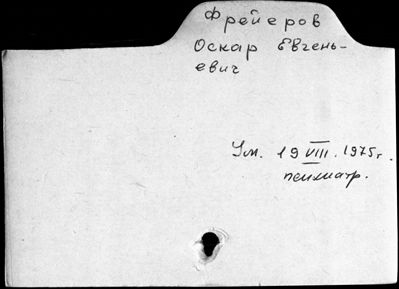 Фрейеров
Оскар Евгень-
евич
Ум. 19 VIII. 1975г.
психиатр.